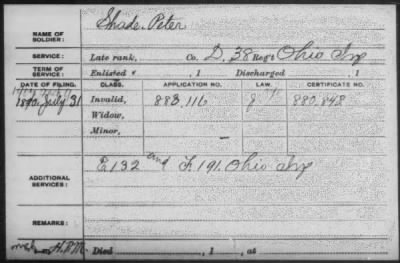 NAME OF SOLDIER: Shade, Peter
SERVICE: Late rank, Co. D, 38 Reg't Ohio Inf
TERM OF SERVICE: Enlisted , 1 Discharged , 1
DATE OF FILING. CLASS. APPLICATION NO. LAW. CERTIFICATE NO.
1890, July 31 Invalid, 883,116 880,848
Widow,
Minor,
ADDITIONAL SERVICES: E 132 and K 191. Ohio Inf
REMARKS:
Died , 1 , at